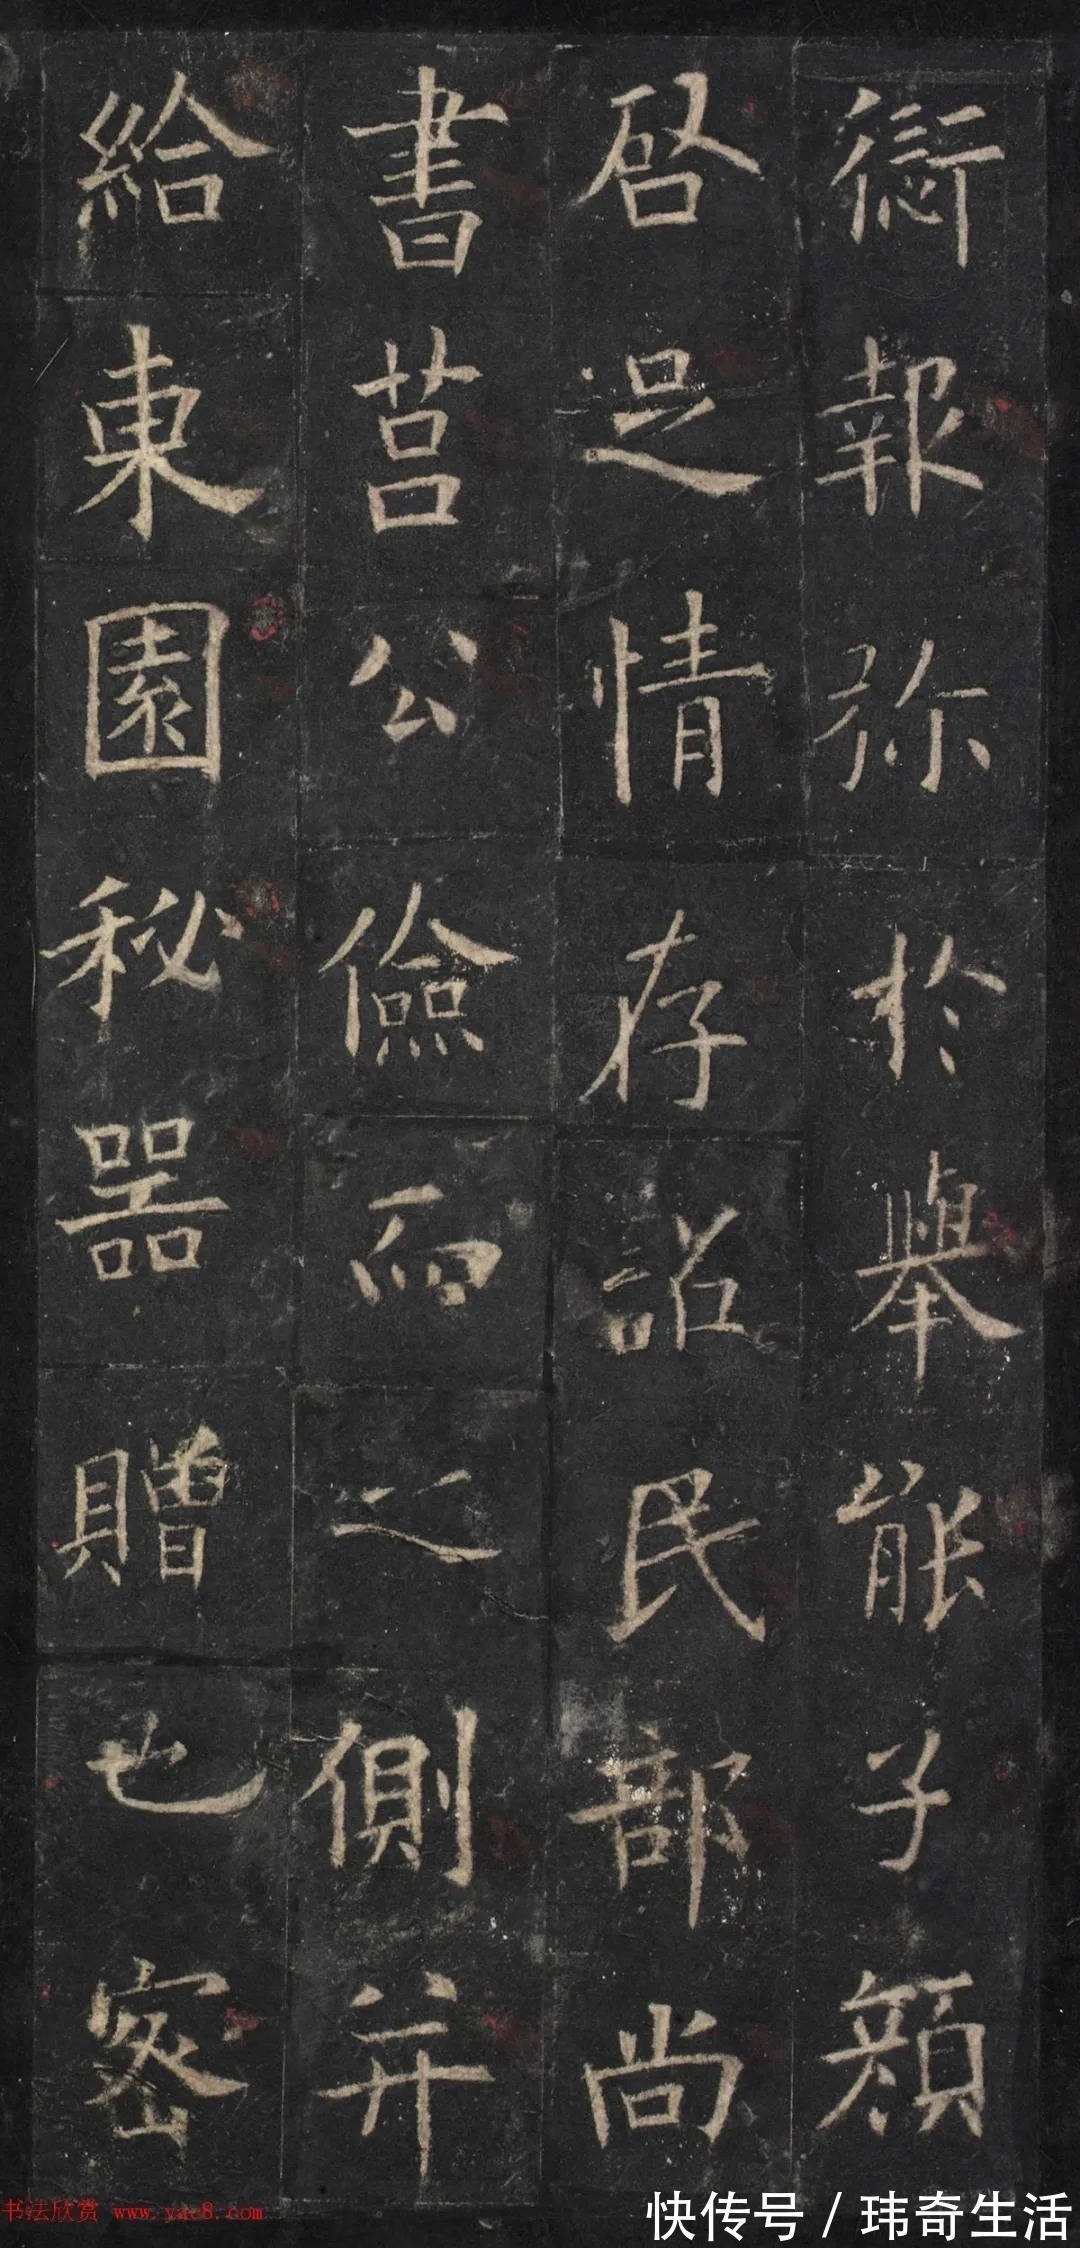 衒報弥於舉能子顔
啓足情存詔民部尚
書莒公儉而之側并
給東園秘器贈也密
书法欣赏 www.yac8.com
快传号 / 玮奇生活